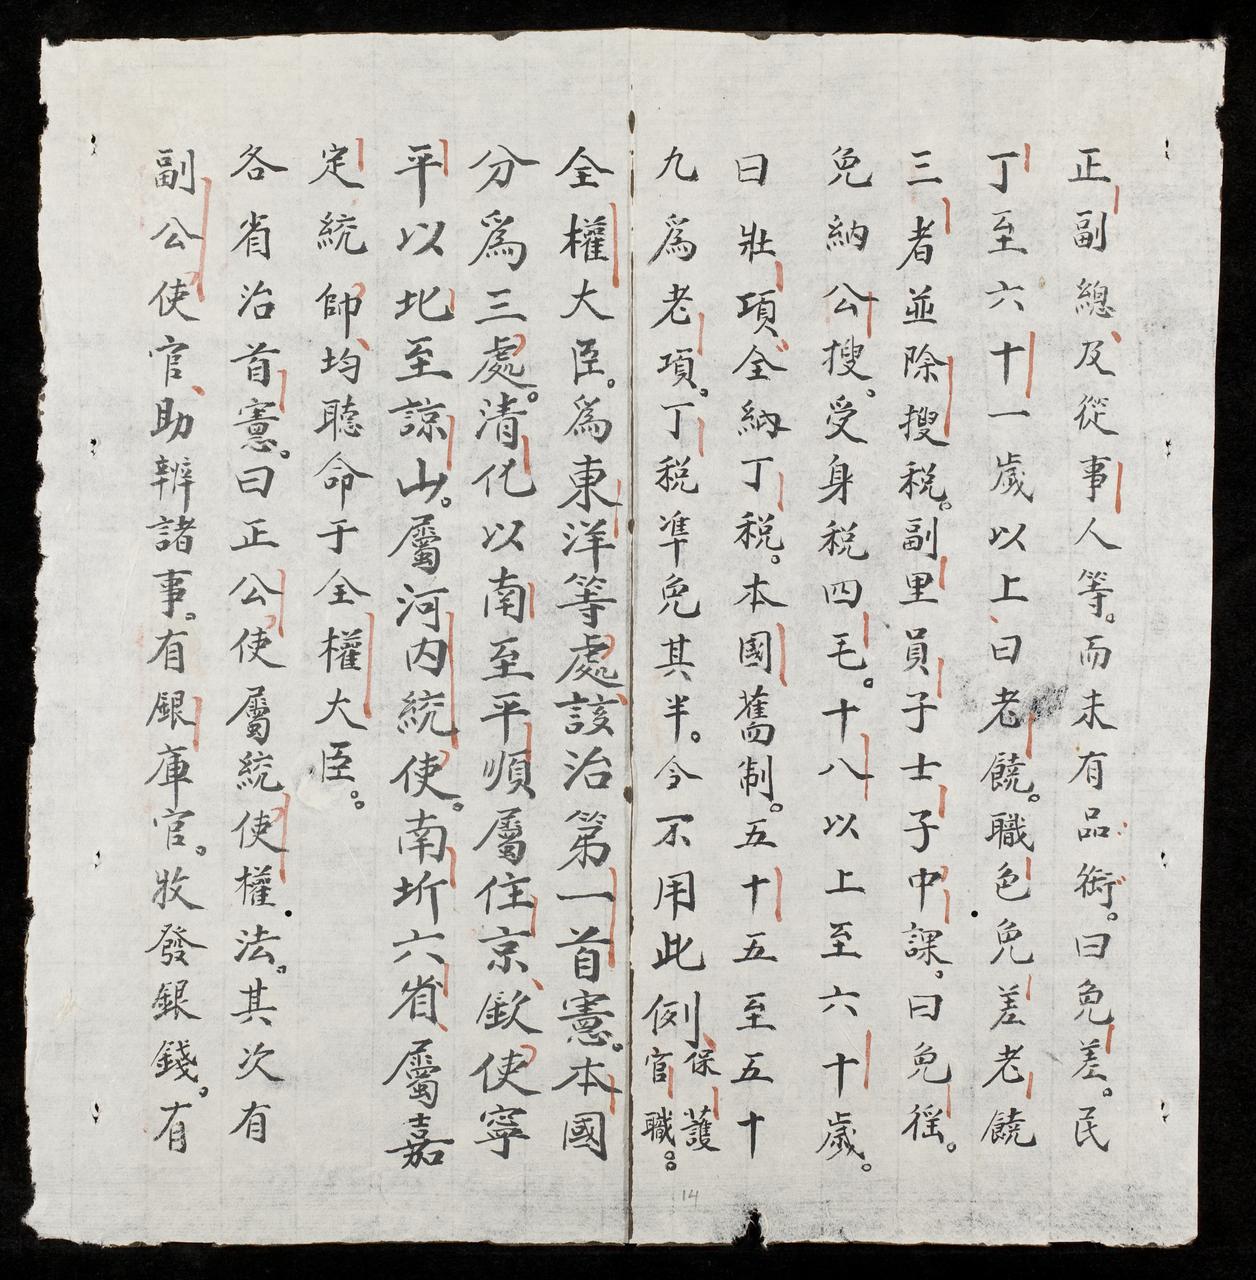 正副總及從事人等。而未有品銜。曰免差。民
丁至六十一歲以上曰老饒。職色免差老饒
三者並除搜税。副里員子士子中課。曰免徭。
免納公搜。受身税四毛。十八以上至六十歲。
曰壯項全納丁税。本國舊制。五十五至五十
九為老項。丁税準免其半。今不用此例保護官職。
全權大臣。爲東洋等處該治第一首憲。本國
分爲三處。清化以南至平順屬住京欽使寧
平以北至諒山。屬河内統使。南圻六省屬嘉
定統帥均聽命于全權大臣。
各省治首憲。曰正公使屬統使權法。其次有
副公使官助辨諸事。有銀庫官。收發銀錢。有
14